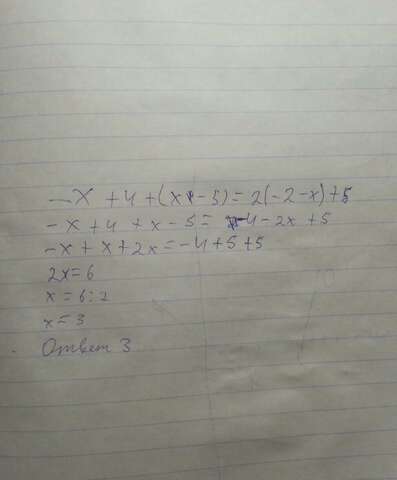 -x + 4 + (x - 5) = 2(-2 - x) + 5
-x + 4 + x - 5 = -4 - 2x + 5
-x + x + 2x = -4 + 5 + 5
2x = 6
x = 6 : 2
x = 3
Ответ 3